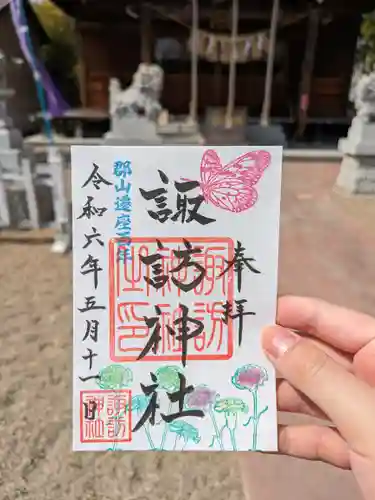 奉拝
諏訪神社
郡山遷座百年
令和六年五月十一日
諏訪神社之印
諏訪神社